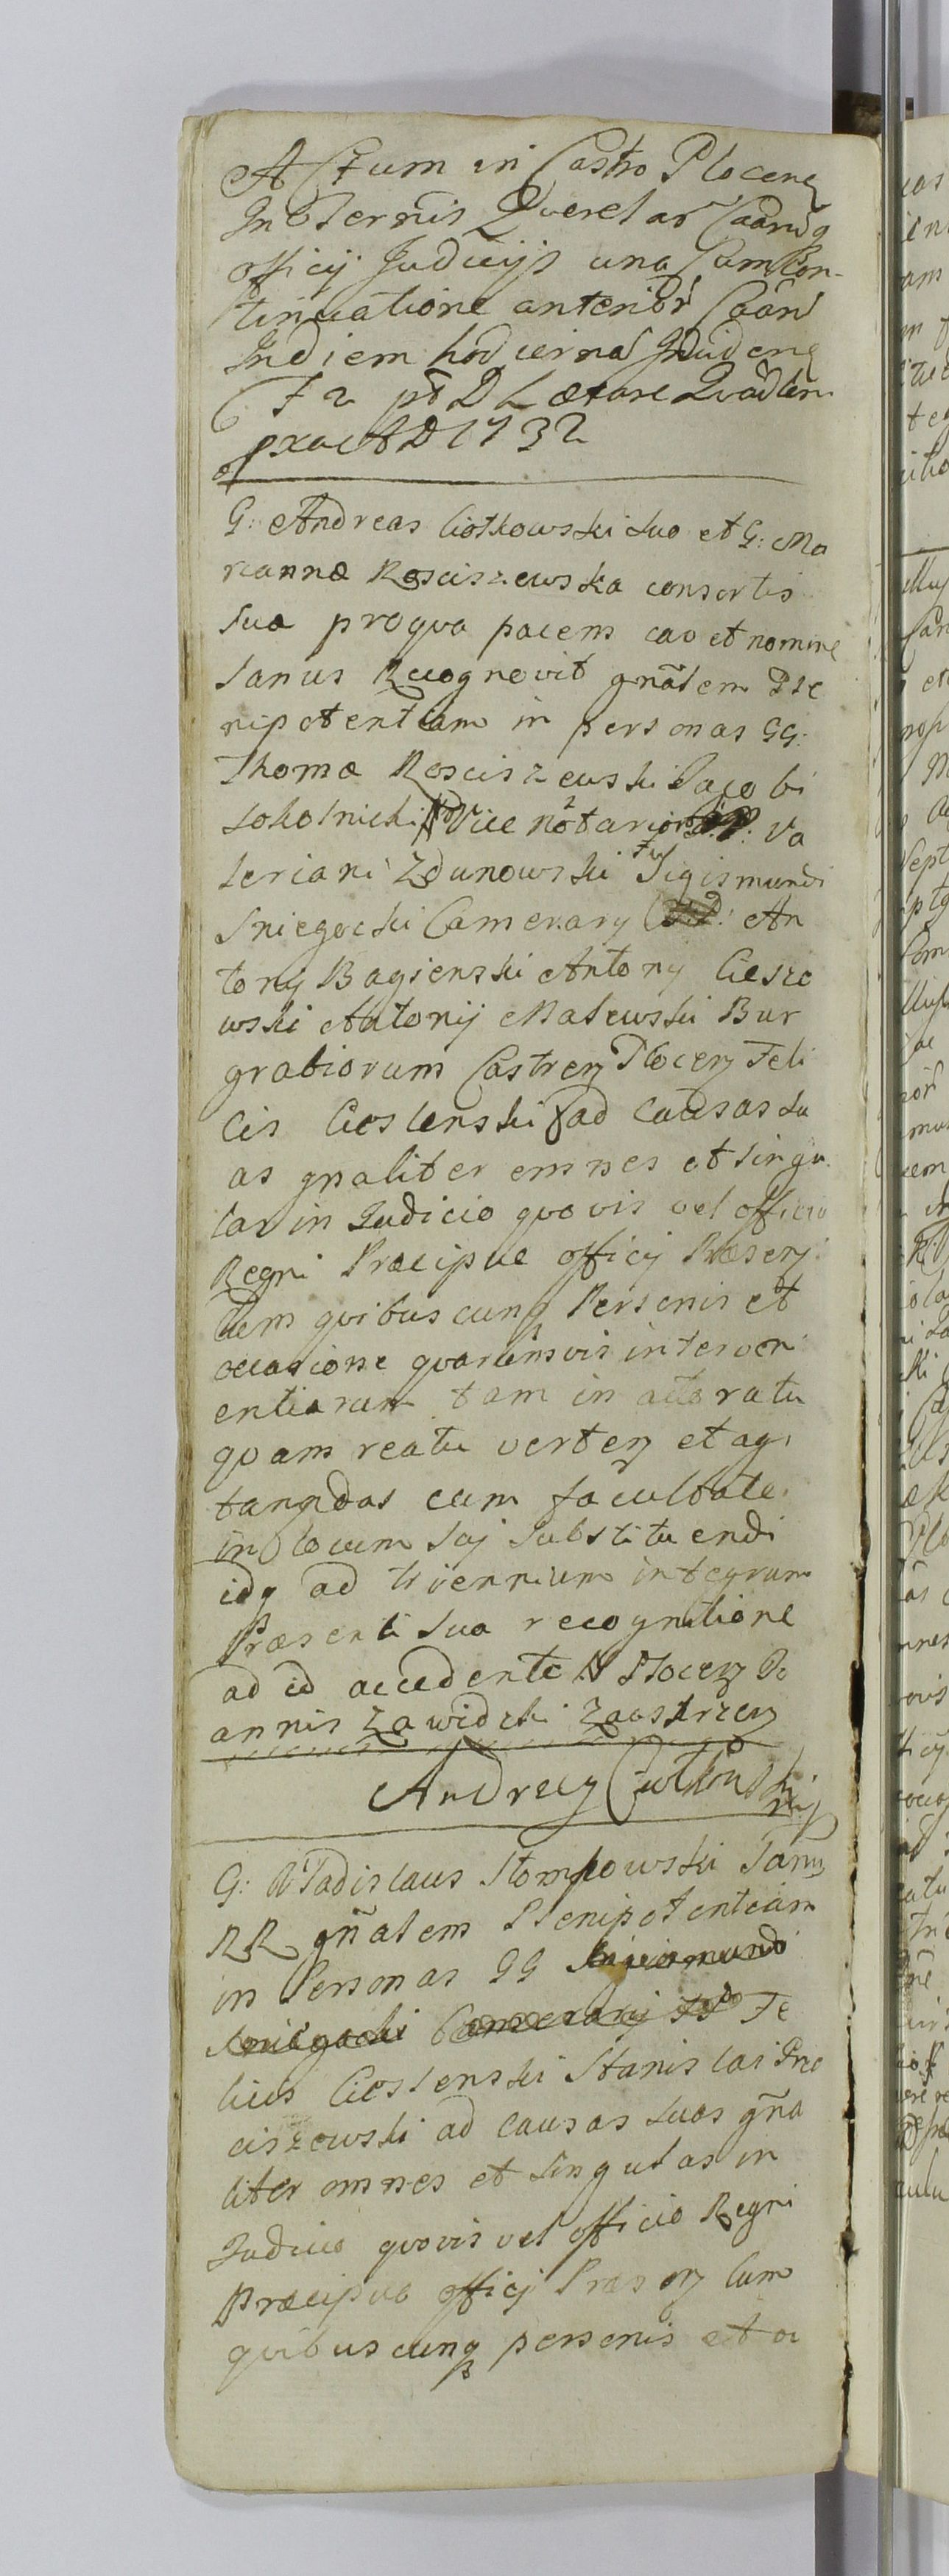 Actum in Castro Plocen
In Ternis Querelar Caarūq
officij Judicijs una Cum Con-
tinuatione anterior Caar
In diem hodierna Inciden
F 2 pt D Lætare Quadra
prox A D 1732
G: Andreas Ciotkowski suo et G: Ma
riannæ Rosciszewska consortis
sua pro qva pacem cao et nomine
sanus Recognovit gnālem Ple
nipotentiam in personas GG:
Thomæ Rosciszewski Jacobi
Sokolnicki Vice notarior Va
leriani Zdunowski Sigismundi
Sniegocki Camerarij An
tonij Bagienski Antonij Ciesze
wski Antonij Malewski Bur
grabiorum Castren Plocen Feli
cis Cieslenski ad Causas su
as gnaliter omnes et singu
lar in Judicio qvovis vel officio
Regni Præcipue officij Præsen
Cum qvibuscunq Personis et
occasione qvarumvis interven
entiarum tam in actoratu
qvam reatu verten et agi
tanndas cum facultate
in locum sui substituendi
idq ad triennium integrum
Præsenti sua recognitione
ad id accedente M Plocen Jo
annis Zawidzki Zaoskrzen
Andrzey Ciutkoūski
mp
G: Wladislaus Stompowski Sanus
RR gñalem Plenipotentiam
in Personas GG Sigismundi
Sniegocki Camerarij Fe
licis Cieslenski Stanislai Gno
ciszewski ad Causas suas gña
liter omnes et singulas in
Judicio qvovis vel officio Regni
Præcipue officij Præsen Cum
qvibuscunq personis et oc